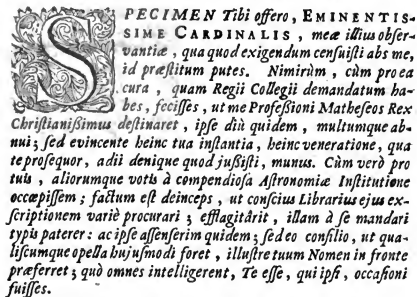 SPECIMEN Tibi offero, EMINENTIS-
SIME CARDINALIS, meæ illius obser-
vantiæ, qua quod exigendum censuisti abs me,
id præstitum putes. Nimirùm, cùm pro ea
cura, quam Regii Collegii demandatum ha-
bes, fecisses, ut me Professioni Matheseos Rex
Christianissimus destinaret, ipse diù quidem, multumque ab-
nui; sed evincente heinc tua instantia, heinc veneratione, qua
te prosequor, adii denique quod jussisti, munus. Cùm verò pro
tuis, aliorumque votis à compendiosa Astronomiæ Institutione
occœpissem; factum est deinceps, ut conscius Librarius ejus ex-
scriptionem variè procurari; efflagitârit, illam à se mandari
typis paterer: ac ipse assenserim quidem; sed eo consilio, ut qua-
liscumque opella hujusmodi foret, illustre tuum Nomen in fronte
præferret; quò omnes intelligerent, Te esse, qui ipsi, occasioni
fuisses.